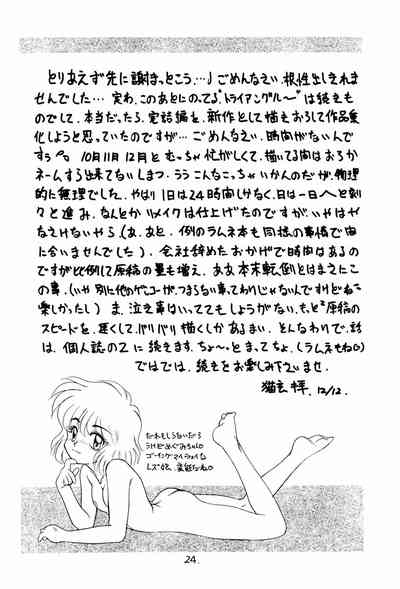 とりあえず先に謝まっとこう…♪ごめんなさい、根性出しきれま
せんでした…実わ、このあとにのってる"トライアングル〜"は続きも
のでして、本当だったら、完結編を、新作として描きおろして作品集
化しようと思っていたのですが…ごめんなさい、時間がないんで
すぅ。10月11月12月ともっちゃ忙がしくて、描いてる間はおろか
ネームする出来てないしまつ。うう こんなこっちゃいかんのだが、物理
的に無理でした。やはり1日は24時間しかなく、日は一日へと刻
々と進み、なんとかリメイクは仕上げたのですが、いやはや
なさけないやら(あ、あと、例のラムネ本も同様の事情で間
に合いませんでした)。会社辞めたおかげで時間はあるの
ですが比例して原稿の量も増え、ああ本末転倒とはまさにこ
の事。(いや、別に他の
つまらない事ってわけじゃないんですけどね〜
楽しかったし)ま、泣き事はいっててもしょうがない、もっと原稿の
スピードを、速くして、バリバリ描くしかあるまい。そんなわけで、話
は、個人誌の2に続きます、ちょ〜っとまっててちょ。(ラムネもね)
ではでは、続きをお楽しみ下さいませ。
12/12.
だれもしらないだろ
うけどめぐみちゃん
ゴーイングマイウェイな
24.